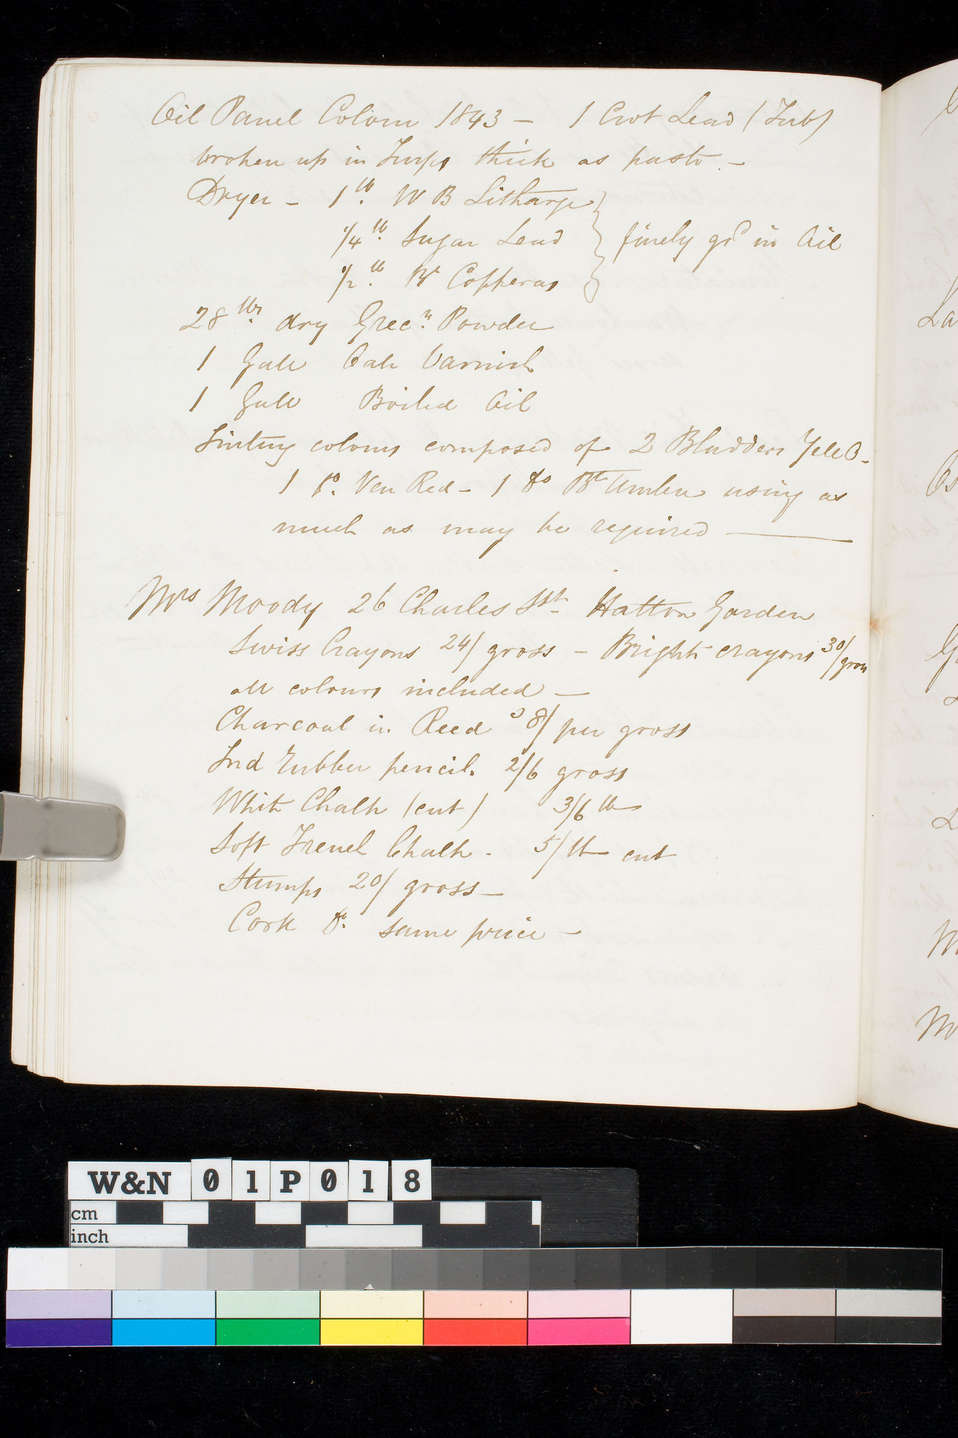 Oil Panel Colour 1843 - 1 Cwt Lead (Tub)
broken up in Turps thick as paste -
Dryer - 1 lb. W B Litharge
1/4 lb. Sugar Lead } finely gd in Oil
1/2 lb. Wt Copperas
28 lbs. dry Grecn. Powder
1 Galls Oak Varnish
1 Gall Boiled Oil
Tinting colours composed of 2 Bladders Yell O-
1 Do. Ven Red - 1 Do Bt Umber using as
much as may be required
Mrs Moody 26 Charles St. Hatton Garden
Swiss Crayons 24/ gross - Bright crayons 30/gross
all colours included -
Charcoal in Reed 8/ per gross
Ind Rubber pencil. 2/6 gross
White Chalk (cut) 3/6 lb
Soft French Chalk - 5/ lb cut
Stumps 20/ gross -
Cork Do. same price -
La
M
M
W&N 01P018
cm
inch